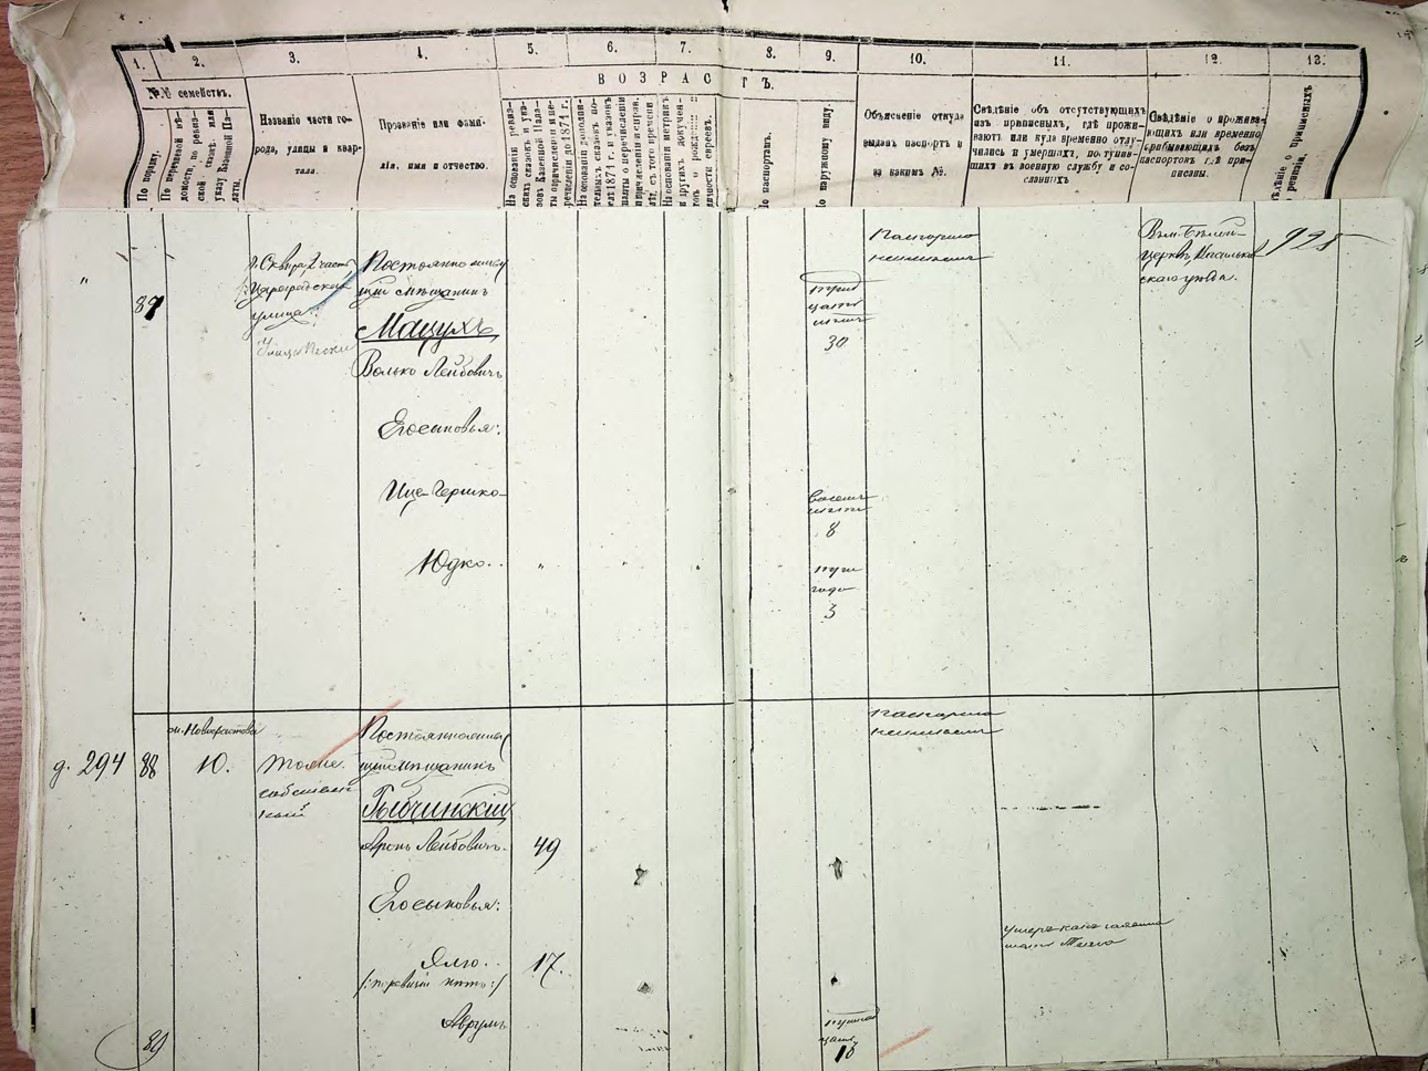 1. 2. 3. 4. 5. 6. 7. 8. 9. 10. 11. 12. 13.
ВОЗРАСТЪ.
№№ семействъ.
По порядку.
По перечневой вѣ-
домости, по ревиз-
ской сказкѣ или
указу Казенной Па-
латы.
Названіе части го-
рода, улицы и квар-
тала.
Прозваніе или фами-
лія, имя и отчество.
На основаніи ревиз-
скихъ сказокъ и ука-
зовъ Казенной Пала-
ты о причисленіи и пе-
речисленіи до 1871 г.
На основаніи дополни-
тельныхъ сказокъ по-
слѣ 1871 г. и указовъ
палаты о перечисленіи
и причисленіи и справ.
лѣт. съ того времени.
На основаніи метрикъ
и другихъ докумен-
товъ о рожденіи
личности евреевъ.
По паспортамъ.
По наружному виду.
Объясненіе откуда
выданъ паспортъ и
за какимъ №.
Свѣдѣніе объ отсутствующихъ
изъ приписныхъ, гдѣ прожи-
ваютъ или куда временно отлу-
чились и умершихъ, поступив-
шихъ въ военную службу и со-
сланныхъ
Свѣдѣніе о прожива-
ющихъ или временно
прибывающихъ безъ
паспортовъ гдѣ при-
писаны.
87
г. Сквира, 2 часть
Цареградская
улица.
Постоянно живу
щій мѣщанинъ
Мацухъ
Волько Лейбовичъ
Его сыновья:
Ице-Гершко
Юдко.
трид
цать
30
восемь
лѣтъ
8
три
года
3
Паспорта
неимѣетъ
Въ м. Бѣлой-
Церкви, Васильков
скаго уѣзда.
925
д. 294
88
м. Новофастова
10.
тоже
собствен
ный
Постоянно живу
щій мѣщанинъ
Рыбчинскій
Аронъ Лейбовичъ.
49
Его сыновья:
17.
Аврумъ
Паспорта
неимѣетъ
89